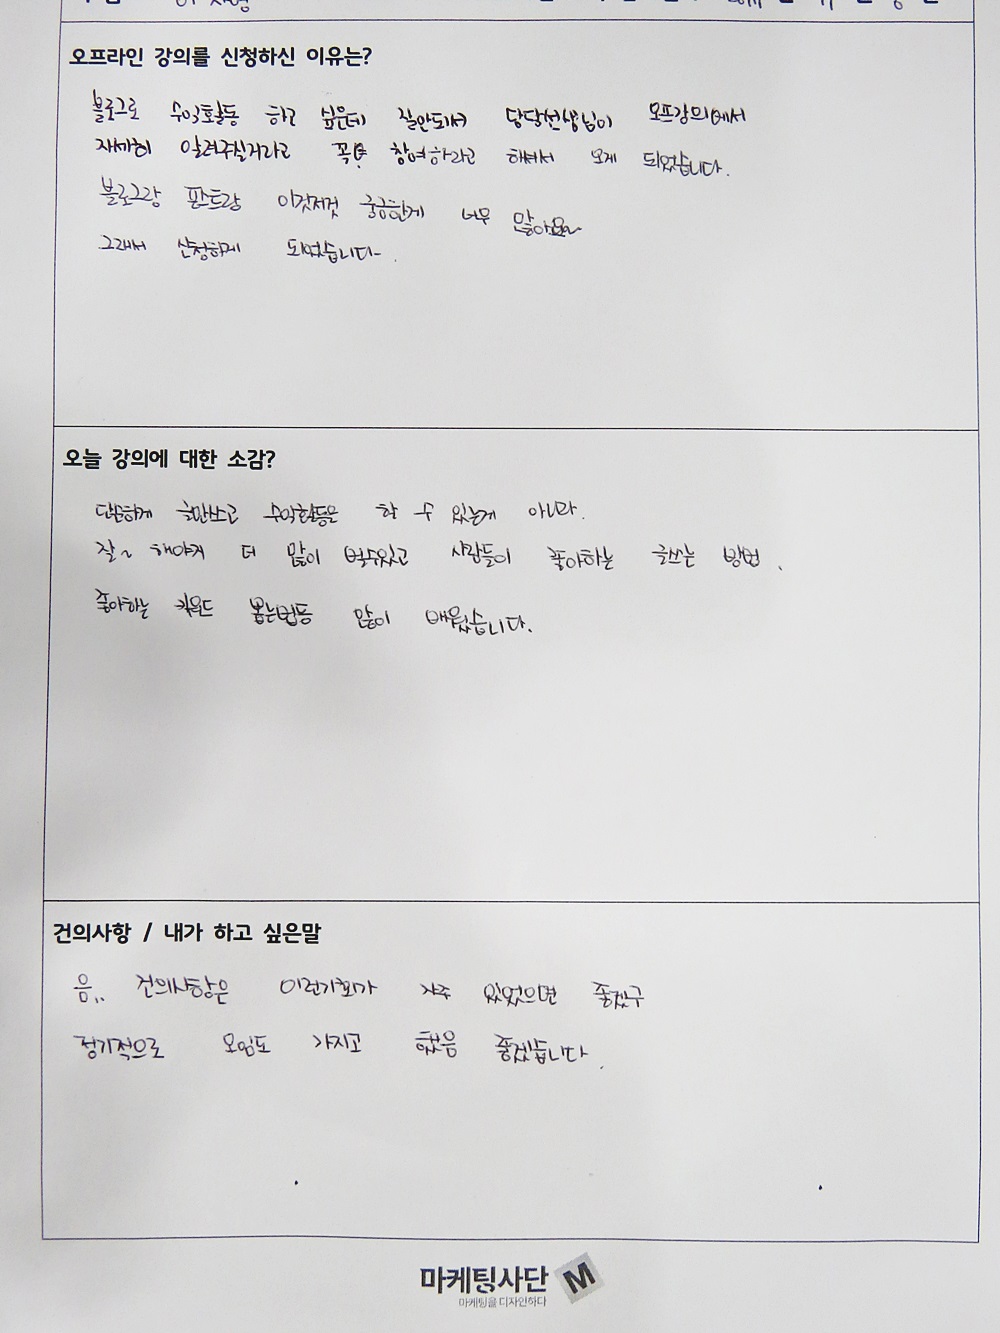 오프라인 강의를 신청하신 이유는?
블로그로 수익활동 하고 싶은데 잘안되서 담당선생님이 오프강의에서
자세히 알려주실거라고 꼭 참여하라고 해서 오게 되었습니다.
블로그랑 파트랑 이것저것 궁금한게 너무 많아요~
그래서 신청하게 되었습니다.
오늘 강의에 대한 소감?
단순하게 글만쓰고 수익활동을 할 수 있는게 아니라.
잘~ 해야지 더 많이 벌수있고 사람들이 좋아하는 글쓰는 방법.
좋아하는 키워드 뽑는법등 많이 배웠습니다.
건의사항 / 내가 하고 싶은말
음.. 건의사항은 이런기회가 자주 있었으면 좋겠구
정기적으로 모임도 가지고 했음 좋겠습니다.
마케팅사단 M
마케팅을 디자인하다